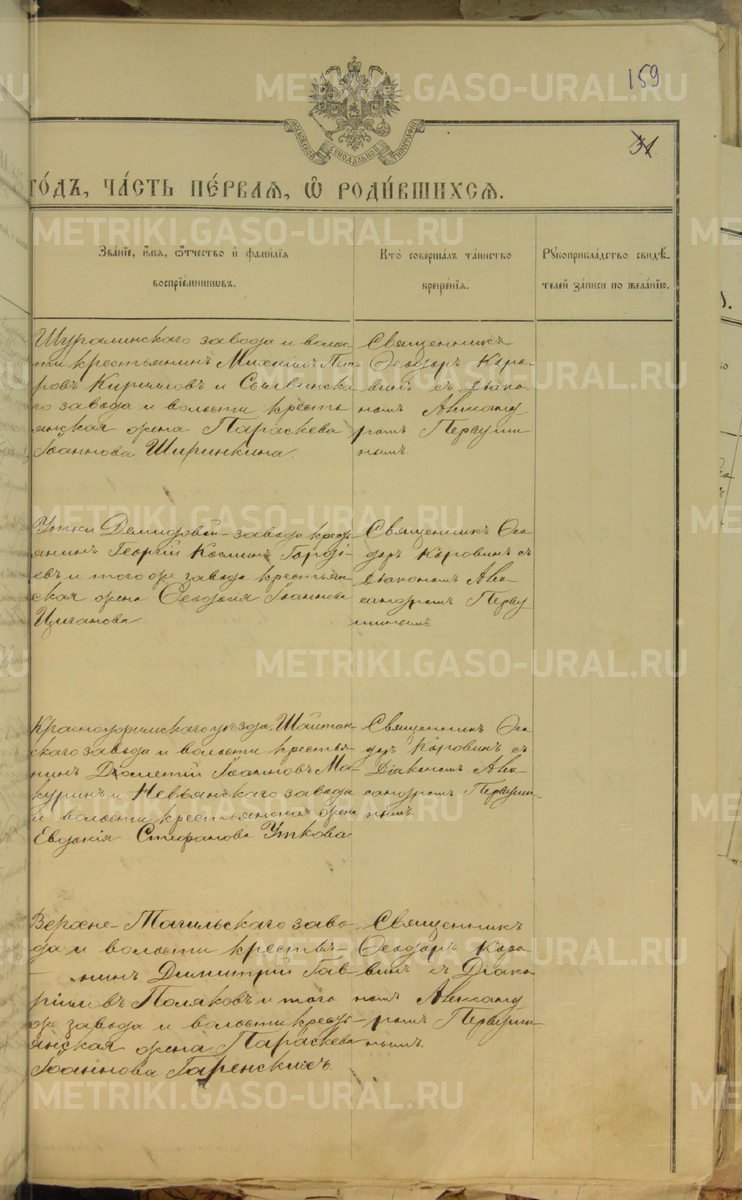 159
31
МОСКОВСКОЙ СѴНОДАЛЬНОЙ ТИПОГРАФІИ
ГОДЪ, ЧАСТЬ ПЕРВАЯ, Ѡ РОДИВШИХСЯ.
Званіе, имя, отчество и фамилія
воспріемниковъ.
Кто совершалъ таинство
крещенія.
Рукоприкладство свидѣ-
телей записи по желанію.
Шуралинскаго завода и волос-
ти крестьянинъ Михаилъ Пет-
ровъ Кирилловъ и Сылвинска
го завода и волости кресть
янская жена Параскева
Іоаннова Ширинкина
Священникъ
Ѳеодоръ Коро-
винъ съ діако-
номъ Александ
ромъ Первуши
нымъ.
Утки Демидовой завода крест
янинъ Георгій Косминъ Горді-
евъ и того же завода крестьян
ская жена Ѳеодосія Іоаннова
Цыганова
Священникъ Ѳео-
доръ Коровинъ съ
діакономъ Алек
сандромъ Перву
шинымъ.
Красноуфимскаго уѣзда, Шайтан-
скаго завода и волости крестья-
нинъ Діомидтій Іоанновъ Ма-
куринъ и Невьянскаго завода
и волости крестьянская жена
Евдокія Стефанова Уткова
Священникъ Ѳео-
доръ Коровинъ съ
Діакономъ Алек
сандромъ Первуши-
нымъ.
Верхне-Тагильскаго заво-
да и волости крестья-
нинъ Димитрій Гав-
рииловъ Поляковъ и того
же завода и волости кресть-
янская жена Параскева
Іоаннова Гаренскихъ.
Священникъ
Ѳеодоръ Коро-
винъ съ Діако
номъ Александ
ромъ Первуши-
нымъ.
METRIKI.GASO-URAL.RU
METRIKI.GASO-URAL.RU
METRIKI.GASO-URAL.RU
METRIKI.GASO-URAL.RU
METRIKI.GASO-URAL.RU
METRIKI.GASO-URAL.RU
METRIKI.GASO-URAL.RU
METRIKI.GASO-URAL.RU